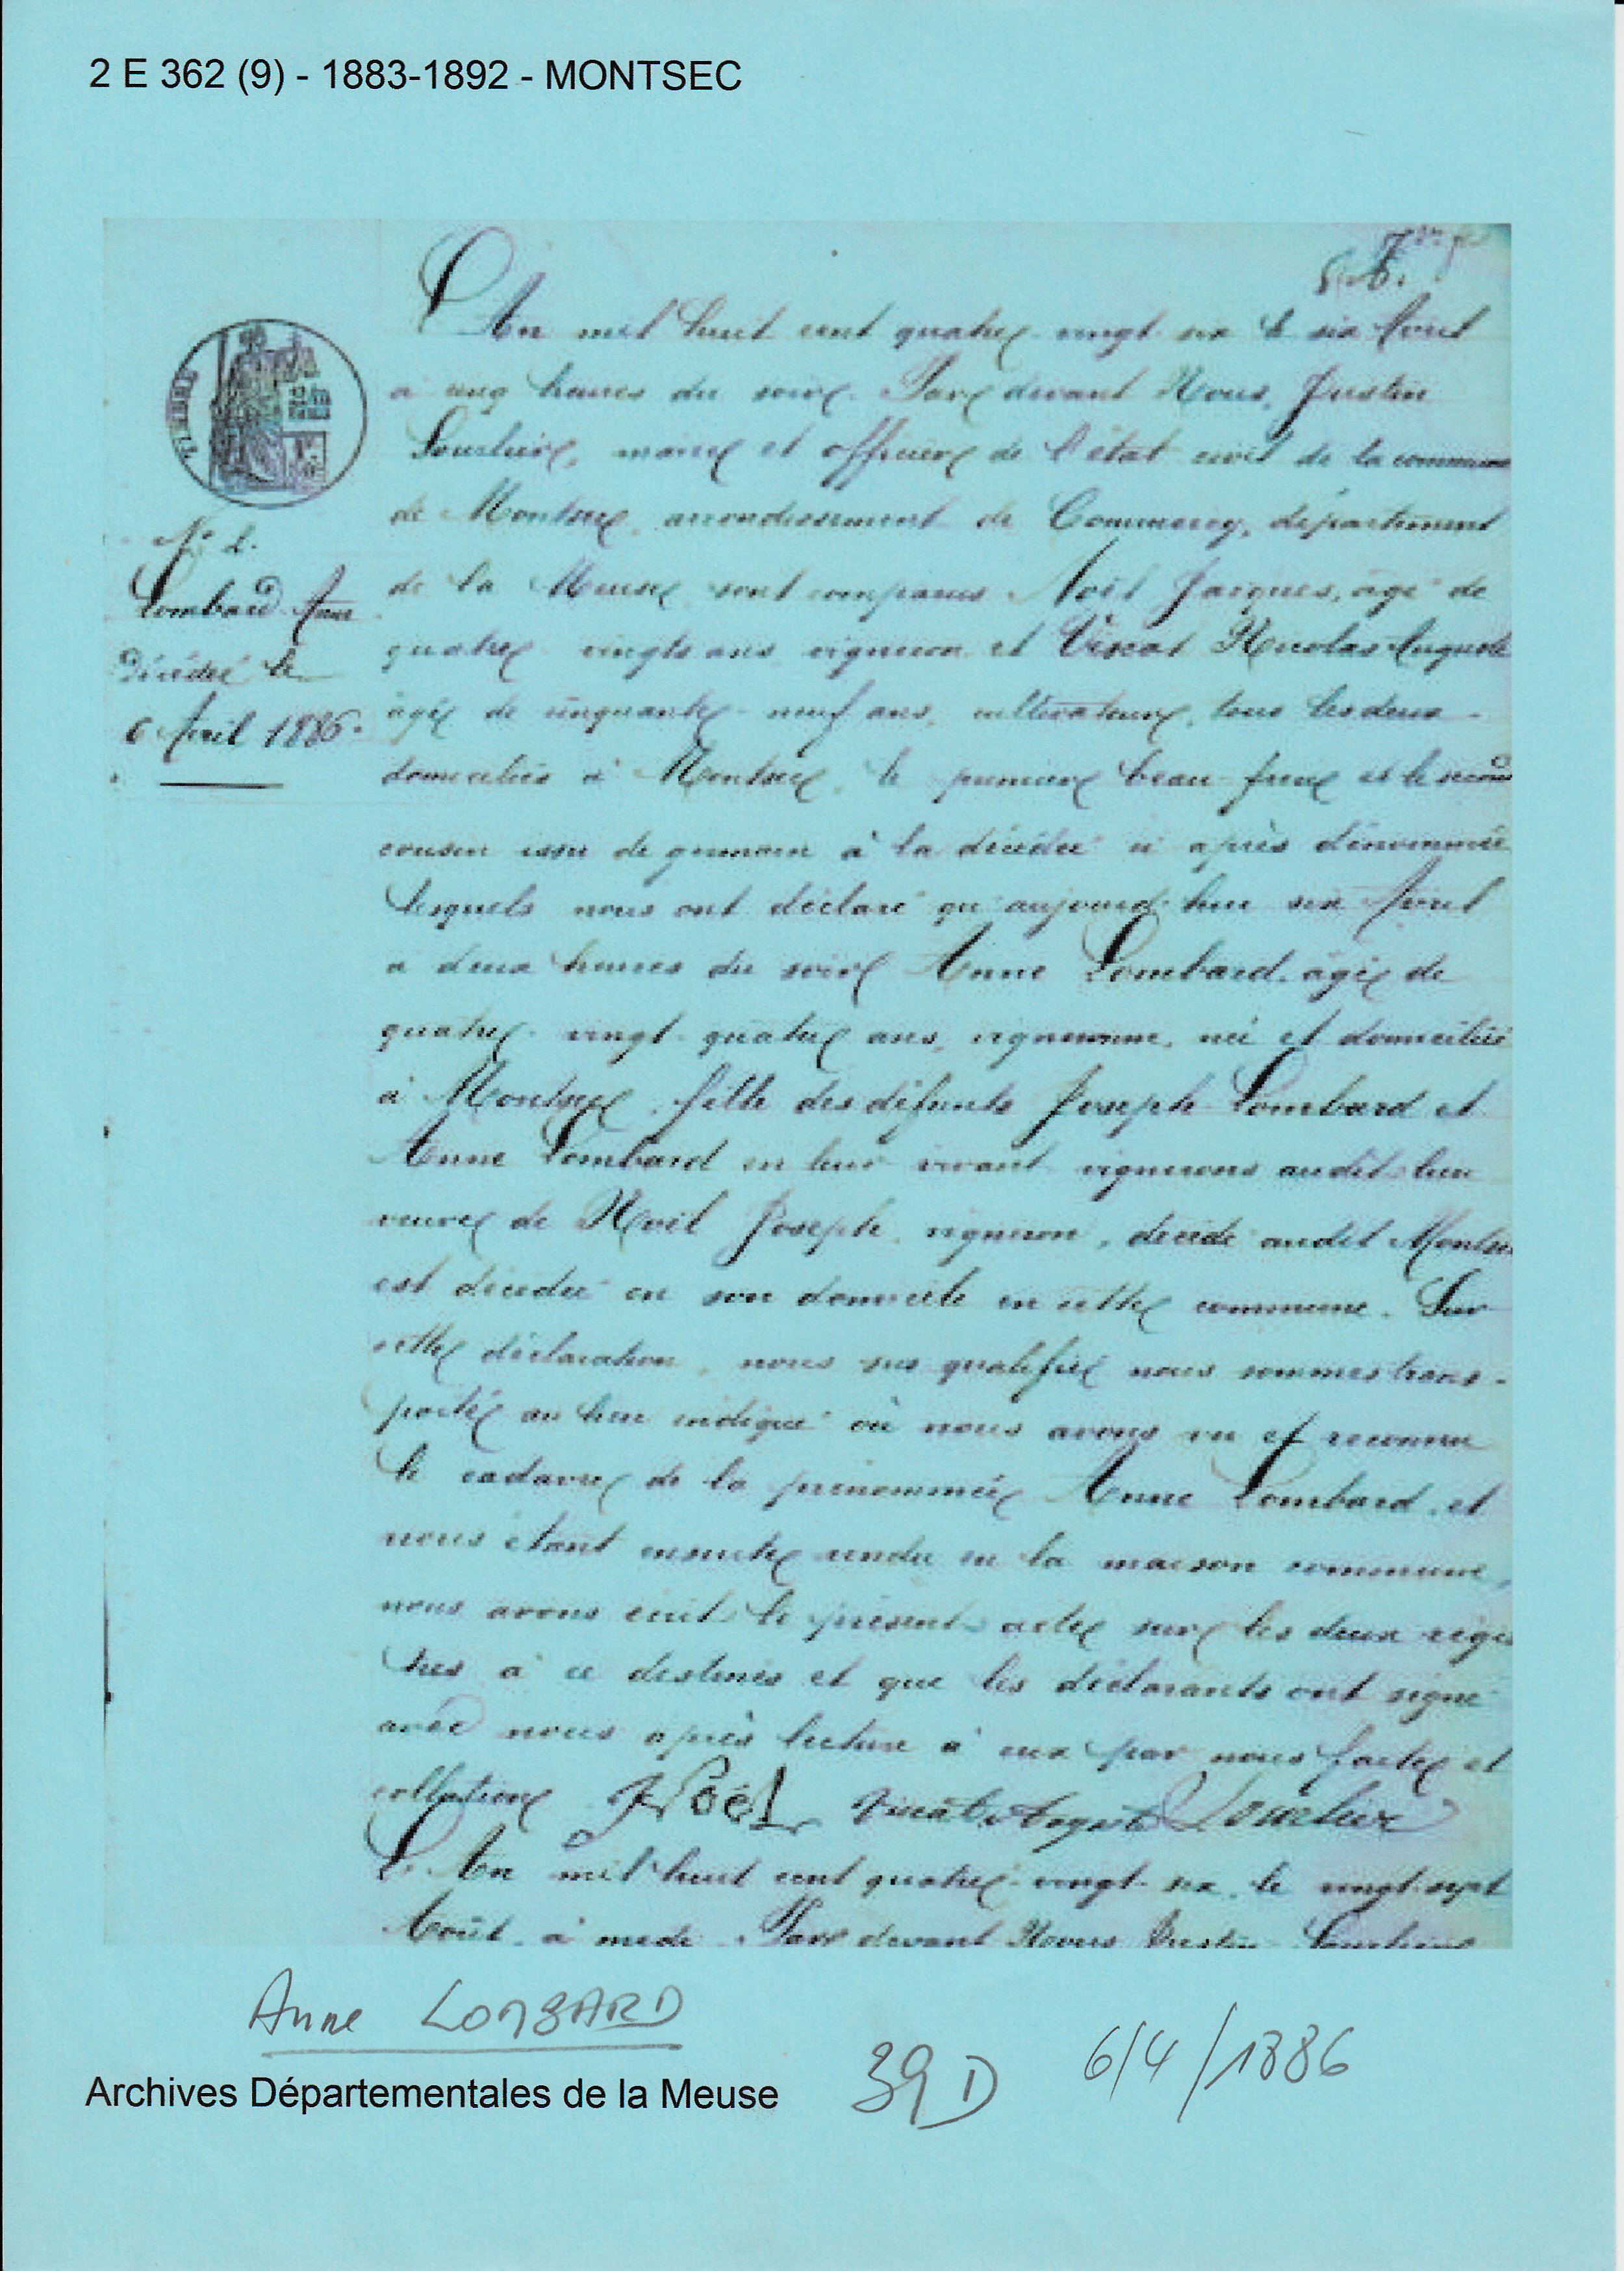 2 E 362 (9) - 1883-1892 - MONTSEC
L'An mil huit cent quatre-vingt-six le six Avril
à cinq heures du soir. Par devant Nous, Justin
maire et officier de l'état civil de la commune
de Montsec, arrondissement de Commercy, département
de la Meuse sont comparus Noël Jacques, âgé de
quatre-vingts ans vigneron et Vincat Nicolas Auguste
âgé de cinquante-neuf ans, cultivateur, tous les deux
domiciliés à Montsec, le premier beau-frère et le second
cousin issu de germain à la décédée ci après dénommée
lesquels nous ont déclaré qu'aujourd'hui six Avril
à deux heures du soir Anne Lombard, âgée de
quatre-vingt-quatre ans, vigneronne, née et domiciliée
à Montsec, fille des défunts Joseph Lombard et
Anne Lombard en leur vivant vignerons audit lieu
veuve de Noël Joseph, vigneron, décédé audit Montsec
est décédée en son domicile en cette commune. Sur
cette déclaration, nous sus qualifié nous sommes trans-
porté au lieu indiqué où nous avons vu et reconnu
le cadavre de la prénommée Anne Lombard, et
nous étant ensuite rendu en la maison commune,
nous avons écrit le présent acte sur les deux regis
tres à ce destinés et que les déclarants ont signé
avec nous après lecture à eux par nous faite et
collation JNoël
N° 2.
Lombard Anne
Décédée le
6 Avril 1886.
L'An mil huit cent quatre-vingt-six, le vingt-sept
Août, à midi. Par devant Nous Justin
Anne LOMBARD
39 D
6/4/1886
Archives Départementales de la Meuse